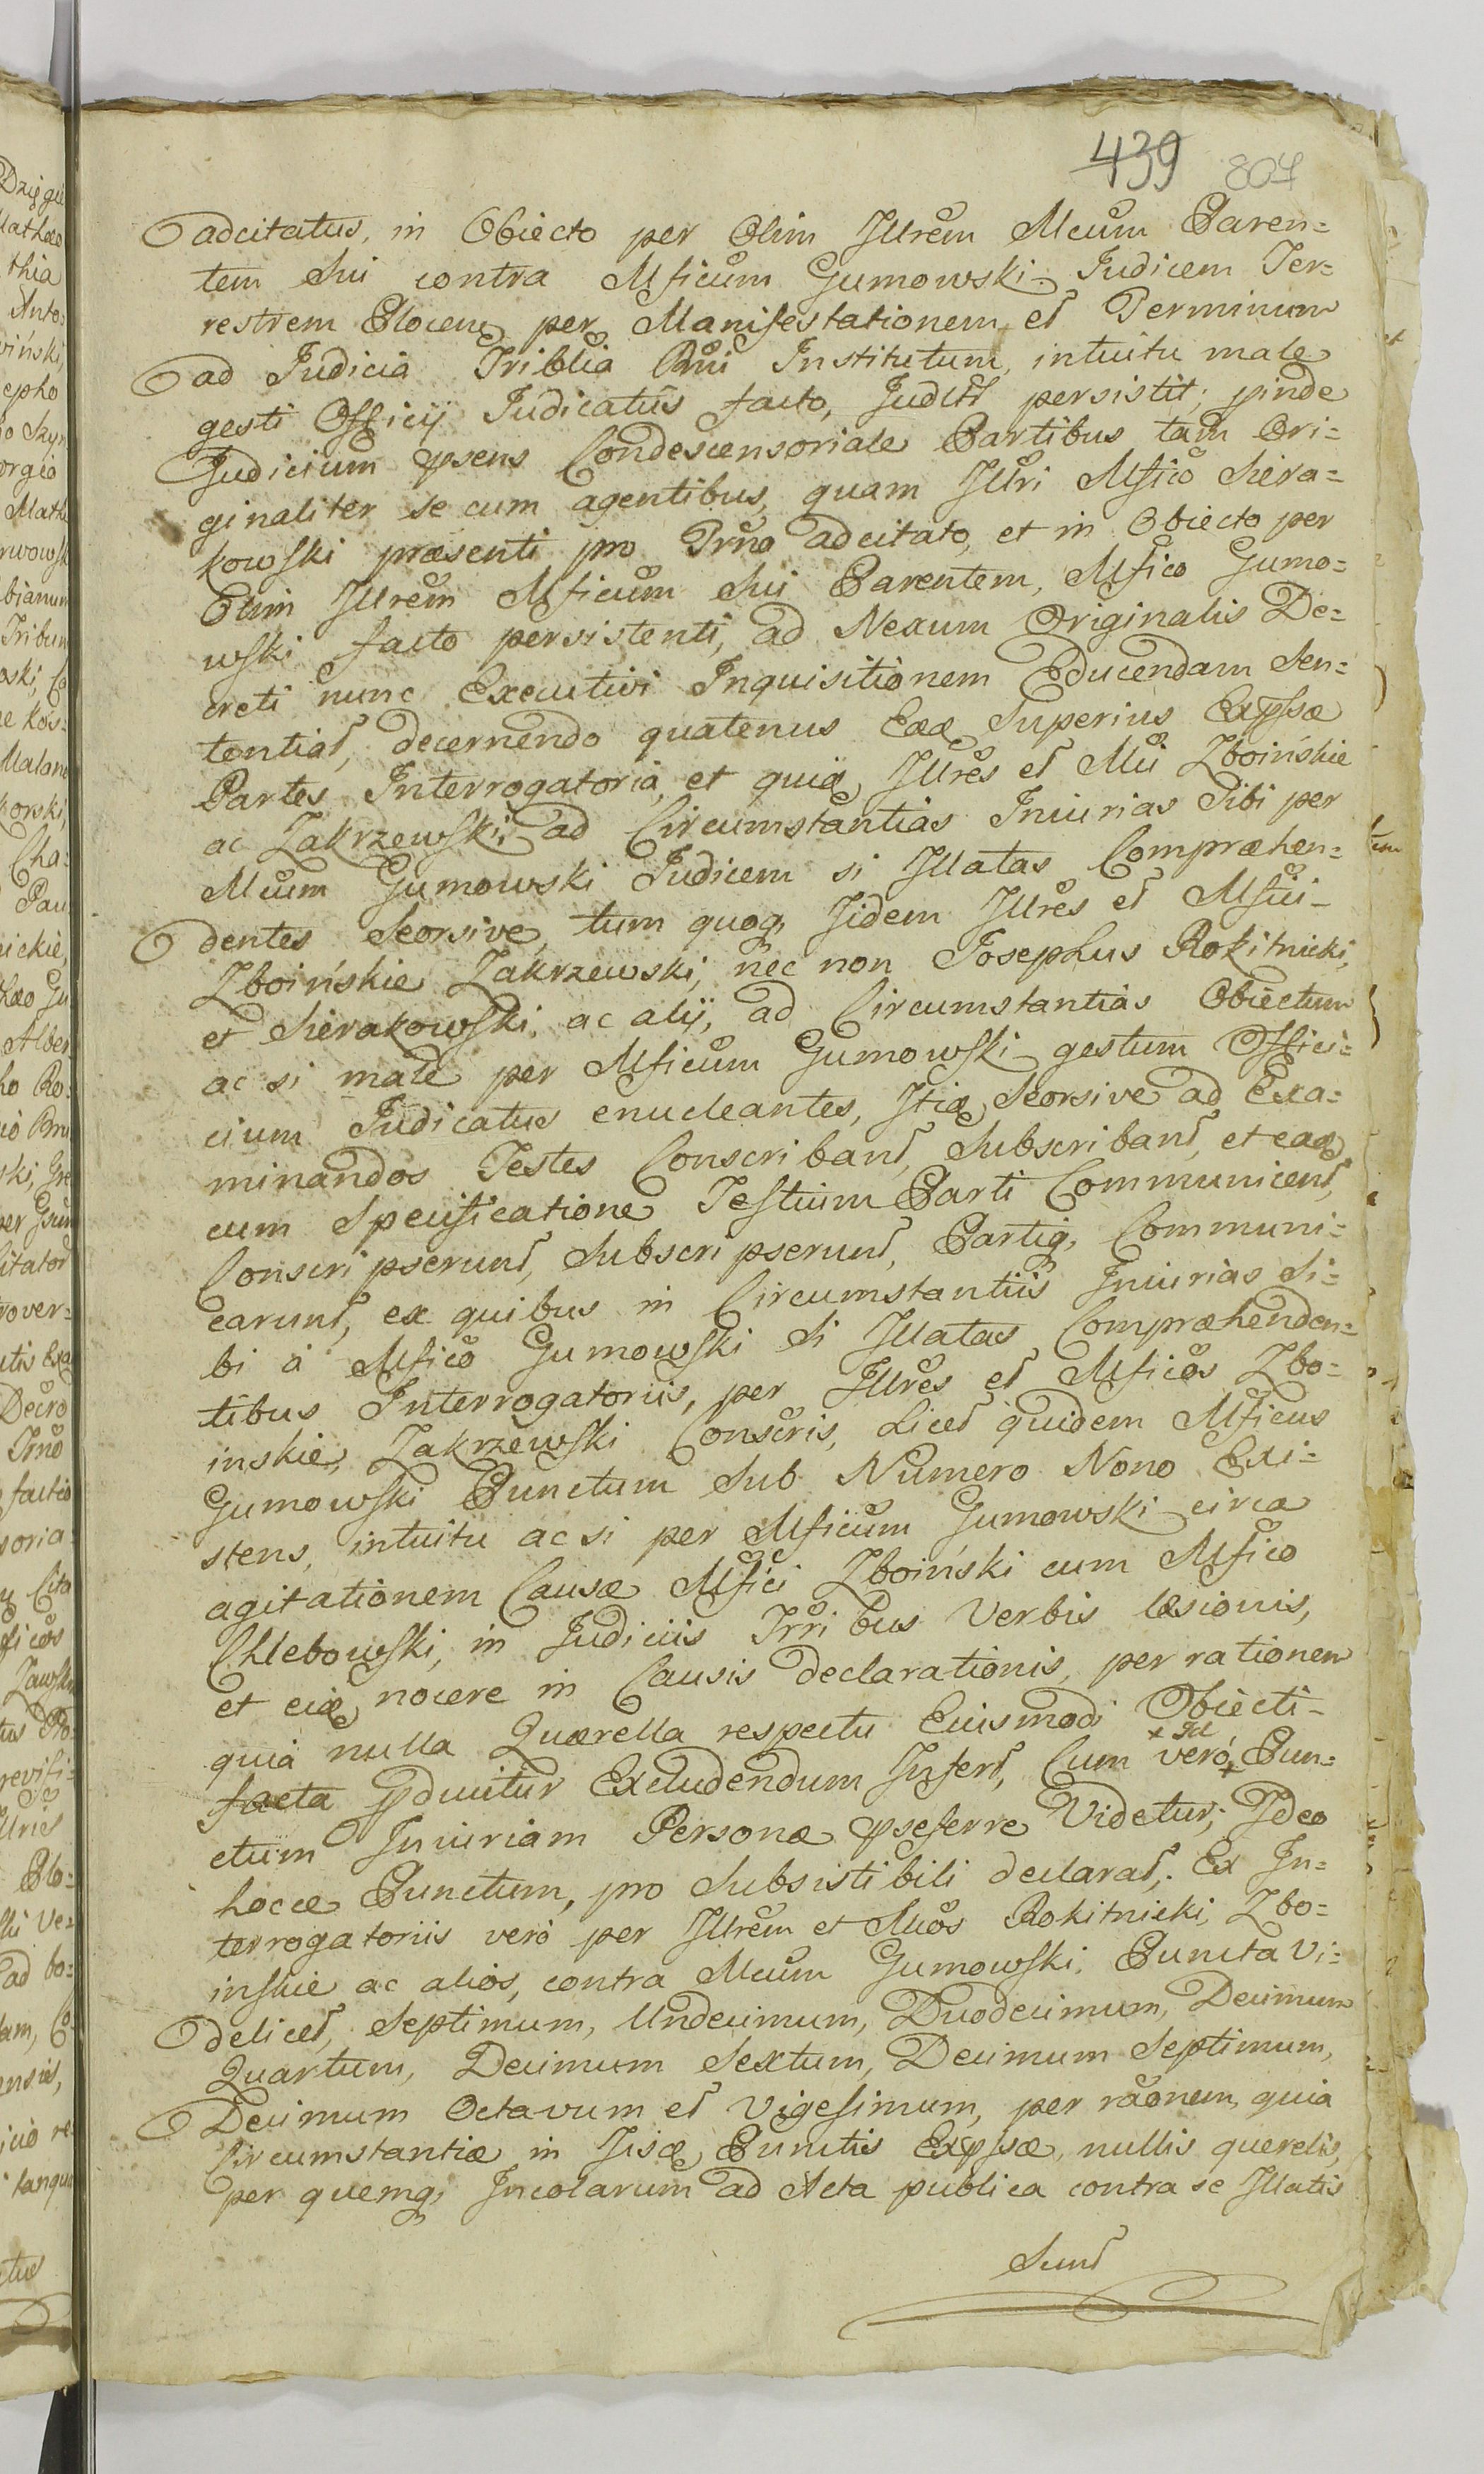 439 807
adcitatus, in Obiecto per Olim Jllrem Mcum Paren=
tem Sui contra Mficum Gumowski Judicem Ter=
restrem Plocen, per Manifestationem et Terminum
ad Judicia Triblia Rni Institutum, intuitu male
gesti Officij Judicatus facto, persistit; pinde
Judicium psens Condescensoriale Partibus tam Ori=
ginaliter se cum agentibus, quam Jllri Mfico Siera=
kowski præsenti pro Trno adcitato, et in Obiecto per
Olim Jllrem Mficum Sui Parentem, Mfico Gumo=
wski facto persistenti, ad Nexum Originalis De=
creti nunc Executivi Inquisitionem Educendam Sen=
tentiat, decernendo quatenus Eæd Superius Expssæ
Partes Interrogatoria, et quid Jllres et Mci Zboińskie
ac Zakrzewski ad Circumstantias Iniurias Sibi per
Mcum Gumowski Judicem si Jllatas Compræhen=
dentes Seorsive, tum quoq, Jidem Jllres et Mfici
Zboińskie Zakrzewski, nec non Josephus Rokitnicki,
et Sierakowski ac alij, ad Circumstantias Obiectum
ac si male per Mficum Gumowski gestum Offici=
cium Judicatus enucleantes, Seorsive ad Exa=
minandos Testes Conscribant, Subscribant, et ead
cum Specificatione Testium Parti Communicent,
Conscripserunt, Subscripserunt, Partiq, Communi=
carunt, ex quibus in Circumstantiis Iniurias Si=
bi à Mfico Gumowski Si Jllatas Compræhenden=
tibus Interrogatoriis, per Jllres et Mficos Zbo=
inskie, Zakrzewski Conscris, Licet quidem Mficus
Gumowski Punctum Sub Numero Nono Exi=
stens, intuitu ac si per Mficum Gumowski circa
agitationem Causæ Mfici Zboiński cum Mfico
Chlebowski, in Judiciis Trribus Verbis læsionis,
et eid nocere in Causis declarationis, per rationem
quia nulla Quærella respectu Eiusmodi Obiecti
facta pducitur Excludendum Infert, Cum vero + Pun=
+ Id
ctum Iniuriam Personæ pseferre Videtur; Ideo
hocce Punctum, pro Subsistibili declarat, Ex In=
terrogatoriis verò per Jllrem et Mcos Rokitnicki, Zbo=
inskie ac alios, contra Mcum Gumowski, Puncta vi=
delicet, Septimum, Undecimum, Duodecimum, Decimum
Quartum, Decimum Sextum, Decimum Septimum,
Decimum Octavum et Vigesimum, per raonem, quia
Circumstantiæ in Jisd Punctis Expssæ, nullis querelis,
per quemq, Incolarum ad Acta publica contra se Jllatis
Sunt